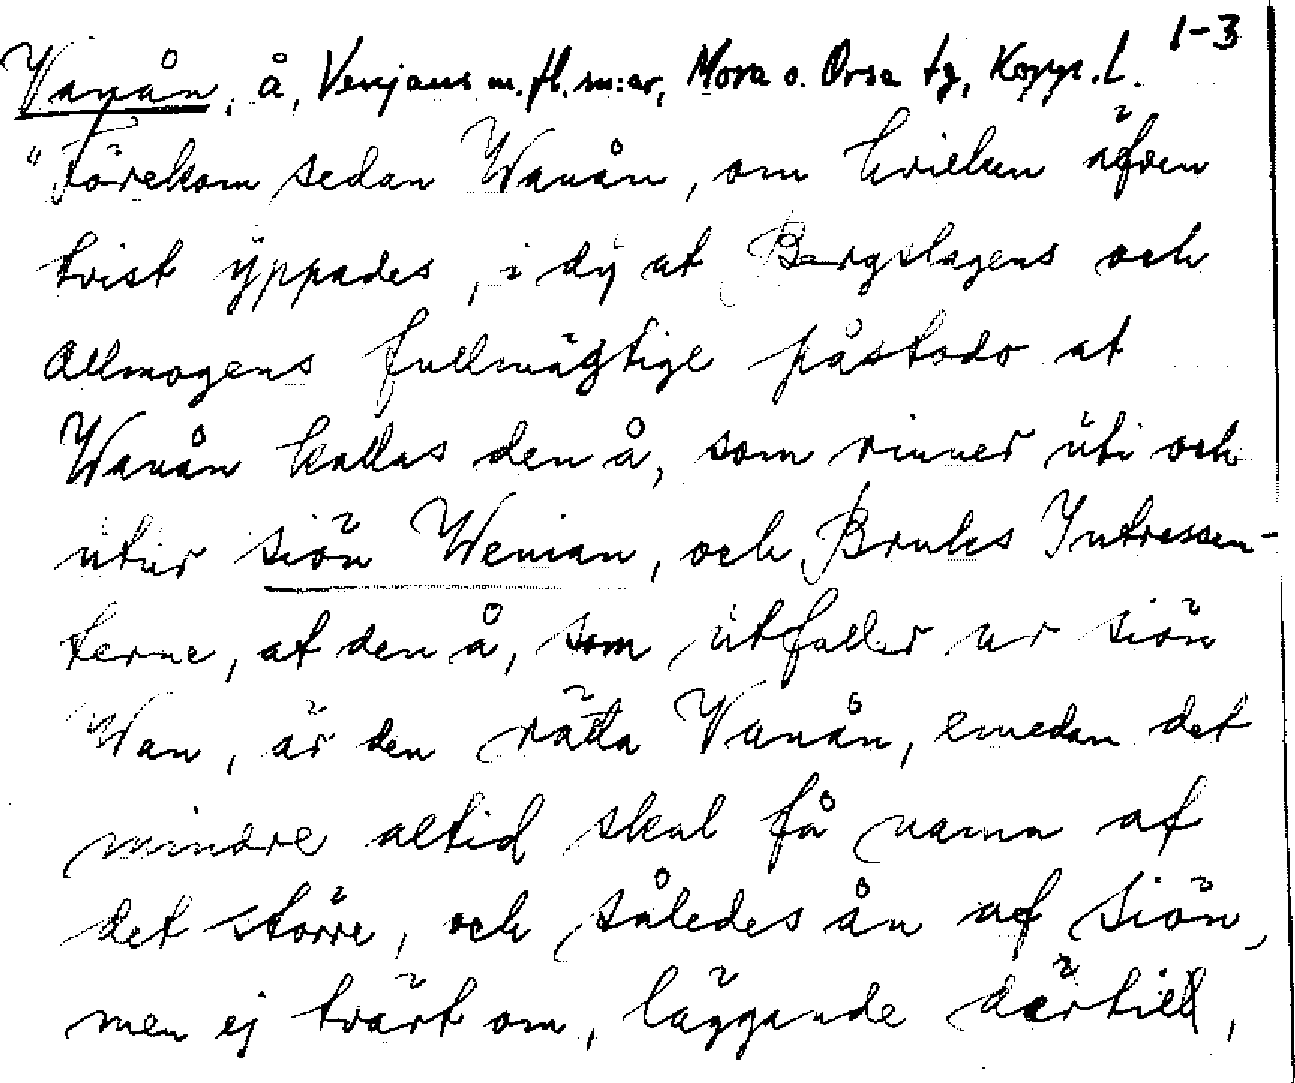 1-3
Vanån, å, Venjans m.fl. sn:ar, Mora o. Orsa tg, Kopp. l.
"Förekom sedan Wanån, om hvilken äfven
tvist yppades, i dy at Bergslagens och
Allmogens fullmägtige påstodo at
Wanån kallas den å, som rinner uti och
utur siön Wenian, och Bruks Intressen-
terne, at den å, som utfaller ur siön
Wan, är den rätta Vanån, emedan det
mindre altid skal få namn af
det större, och således ån af siön,
men ej tvärt om, läggande därtill,